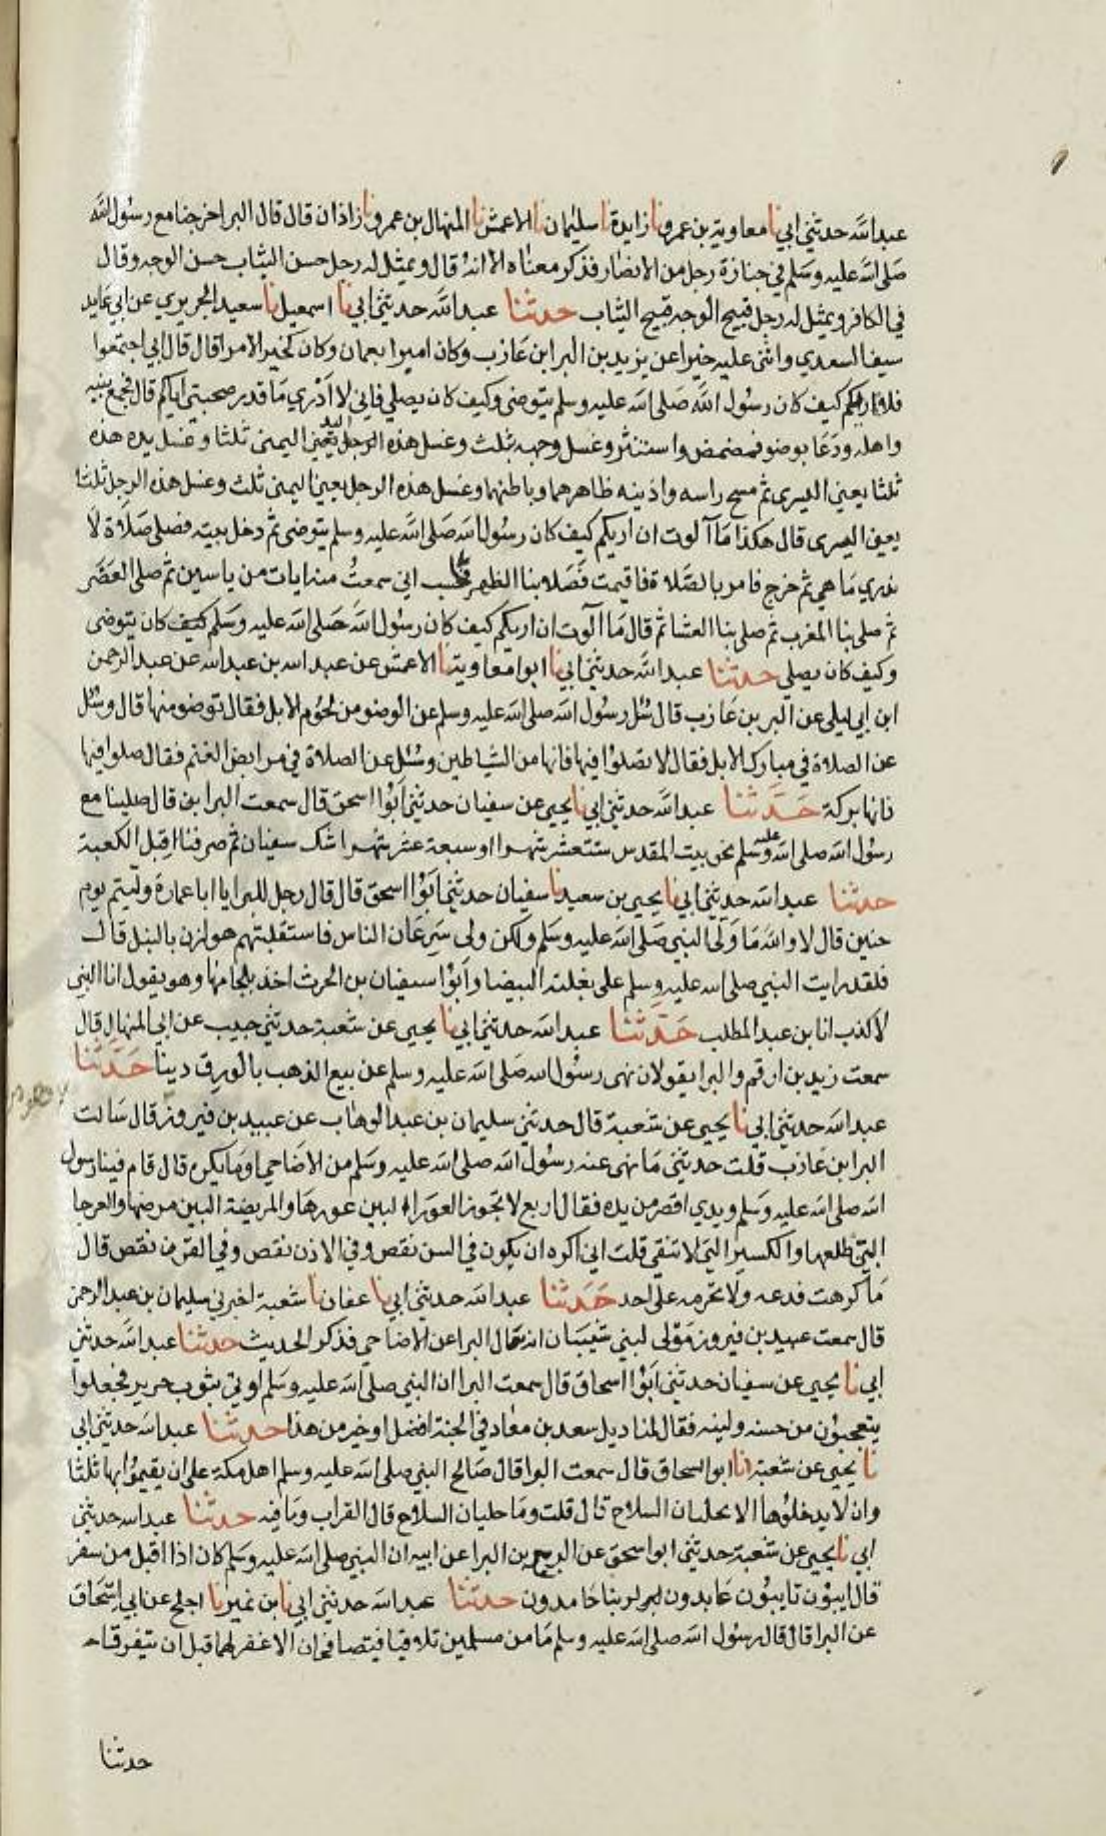 عبدالله حدثني ابي نا معاوية بن عمرو نا زايدة نا سليمان نا الاعمش نا المنهال بن عمرو نا زاذان قال قال البرا خرجنا مع رسول الله
صلى الله عليه وسلم في جنازة رجل من الانصار فذكر معناه الا انه قال ويمثل له رجل حسن الثياب حسن الوجه وقال
في الكافر ويمثل له رجل قبيح الوجه قبيح الثياب حدثنا عبدالله حدثني ابي نا اسمعيل نا سعيد الجريري عن ابي عايد
سيف السعدي واثنى عليه خيرا عن يزيد بن البرا ابن عازب وكان اميرا بعمان وكان كخير الامرا قال قال ابي اجتمعوا
فلاريكم كيف كان رسول الله صلى الله عليه وسلم يتوضى وكيف كان يصلي فاني لا ادري ما قدر صحبتي اياكم قال فجمع بنيه
واهله ودعا بوضو فمضمض واستنثر وغسل وجهه ثلث وغسل هذه اليد يعني اليمنى ثلثا وغسل يده هذه
ثلثا يعني اليسرى ثم مسح راسه واذينه ظاهرهما وباطنهما وغسل هذه الرجل يعني اليمنى ثلث وغسل هذه الرجل ثلثا
يعني اليسرى قال هكذا ما آلوت ان اريكم كيف كان رسول الله صلى الله عليه وسلم يتوضى ثم دخل بيته فصلى صلاة لا
ندري ما هي ثم خرج فامر بالصلاة فاقيمت فصلا بنا الظهر فاحسب اني سمعت منه ايات من ياسين ثم صلى العصر
ثم صلى بنا المغرب ثم صلى بنا العشا ثم قال ما آلوت ان اريكم كيف كان رسول الله صلى الله عليه وسلم كيف كان يتوضى
وكيف كان يصلي حدثنا عبدالله حدثني ابي نا ابوا معاوية نا الاعمش عن عبد الله بن عبدالله عن عبد الرحمن
ابن ابي ليلى عن البر بن عازب قال سئل رسول الله صلى الله عليه وسلم عن الوضو من لحوم الابل فقال توضو منها قال وسئل
عن الصلاة في مبارك الابل فقال لا تصلوا فيها فانها من الشياطين وسئل عن الصلاة في مرابض الغنم فقال صلوا فيها
فانها بركة حدثنا عبدالله حدثني ابي نا يحيى عن سفيان حدثني ابوا اسحق قال سمعت البرا بن قال صلينا مع
رسول الله صلى الله عليه وسلم نحو بيت المقدس ستة عشر شهرا او سبعة عشر شهرا شك سفيان ثم صرفنا قبل الكعبة
حدثنا عبدالله حدثني ابي نا يحيى بن سعيد نا سفيان حدثني ابوا اسحق قال قال رجل للبرا يا ابا عمارة وليتم يوم
حنين قال لا والله ما ولى النبي صلى الله عليه وسلم ولكن ولى سرعان الناس فاستقبلتهم هوازن بالنبل قال
فلقد رايت النبي صلى الله عليه وسلم على بغلته البيضا وابوا سفيان بن الحرث اخذ بلجامها وهو يقول انا النبي
لا كذب انا بن عبد المطلب حدثنا عبدالله حدثني ابي نا يحيى عن شعبة حدثني حبيب عن ابي المنهال قال
سمعت زيد بن ارقم والبرا يقولان نهى رسول الله صلى الله عليه وسلم عن بيع الذهب بالورق دينا حدثنا
عبدالله حدثني ابي نا يحيى عن شعبة قال حدثني سليمان بن عبدالوهاب عن عبيد بن فيروز قال سالت
البرا ابن عازب قلت حدثني ما نهى عنه رسول الله صلى الله عليه وسلم من الاضاحي او ما يكره قال قام فينا رسول
الله صلى الله عليه وسلم ويدي اقصر من يده فقال اربع لا تجوز العورا البين عورها والمريضة البين مرضها والعرجا
البين ظلعها والكسير التي لا تنقي قلت اني اكره ان يكون في السن نقص وفي الاذن نقص وفي القرن نقص قال
ما كرهت فدعه ولا تحرمه على احد حدثنا عبدالله حدثني ابي نا عفان نا شعبة اخبرني سليمان بن عبد الرحمن
قال سمعت عبيد بن فيروز مولى لبني شيبان انه سال البرا عن الاضاحي فذكر الحديث حدثنا عبدالله حدثني
ابي نا يحيى عن سفيان حدثني ابوا اسحاق قال سمعت البرا ان النبي صلى الله عليه وسلم اوتي بثوب حرير فجعلوا
يتعجبون من حسنه ولينه فقال لمناديل سعد بن معاد في الجنة افضل او خير من هذا حدثنا عبدالله حدثني ابي
نا يحيى عن شعبة نا ابو اسحاق قال سمعت البرا قال صالح النبي صلى الله عليه وسلم اهل مكة على ان يقيموا بها ثلثا
وان لا يدخلوها الا بجلبان السلاح قال قلت وما جلبان السلاح قال القراب وما فيه حدثنا عبدالله حدثني
ابي نا يحيى عن شعبة حدثني ابوا سحق عن الربيع بن البرا عن ابيه ان النبي صلى الله عليه وسلم كان اذا اقبل من سفر
قال ايبون تايبون عابدون لربنا حامدون حدثنا عبدالله حدثني ابي نا بن نمير نا اجلح عن ابي اسحاق
عن البرا قال قال رسول الله صلى الله عليه وسلم ما من مسلمين تلاقيا فيتصافحان الا غفر لهما قبل ان يتفرقا
حدثنا